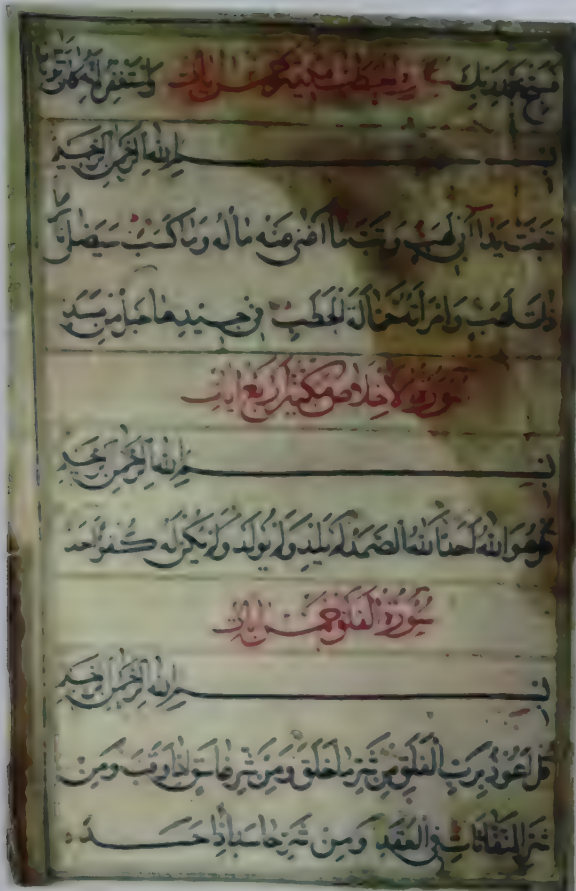 فسبح بحمد ربك واستغفره انه كان توابا
بسم الله الرحمن الرحيم
تبت يدا ابي لهب وتب ما اغنى عنه ماله وما كسب سيصلى نارا
ذات لهب وامراته حمالة الحطب في جيدها حبل من مسد
سورة الاخلاص مكية اربع ايات
بسم الله الرحمن الرحيم
قل هو الله احد الله الصمد لم يلد ولم يولد ولم يكن له كفوا احد
سورة الفلق خمس ايات
بسم الله الرحمن الرحيم
قل اعوذ برب الفلق من شر ما خلق ومن شر غاسق اذا وقب ومن
شر النفاثات في العقد ومن شر حاسد اذا حسد